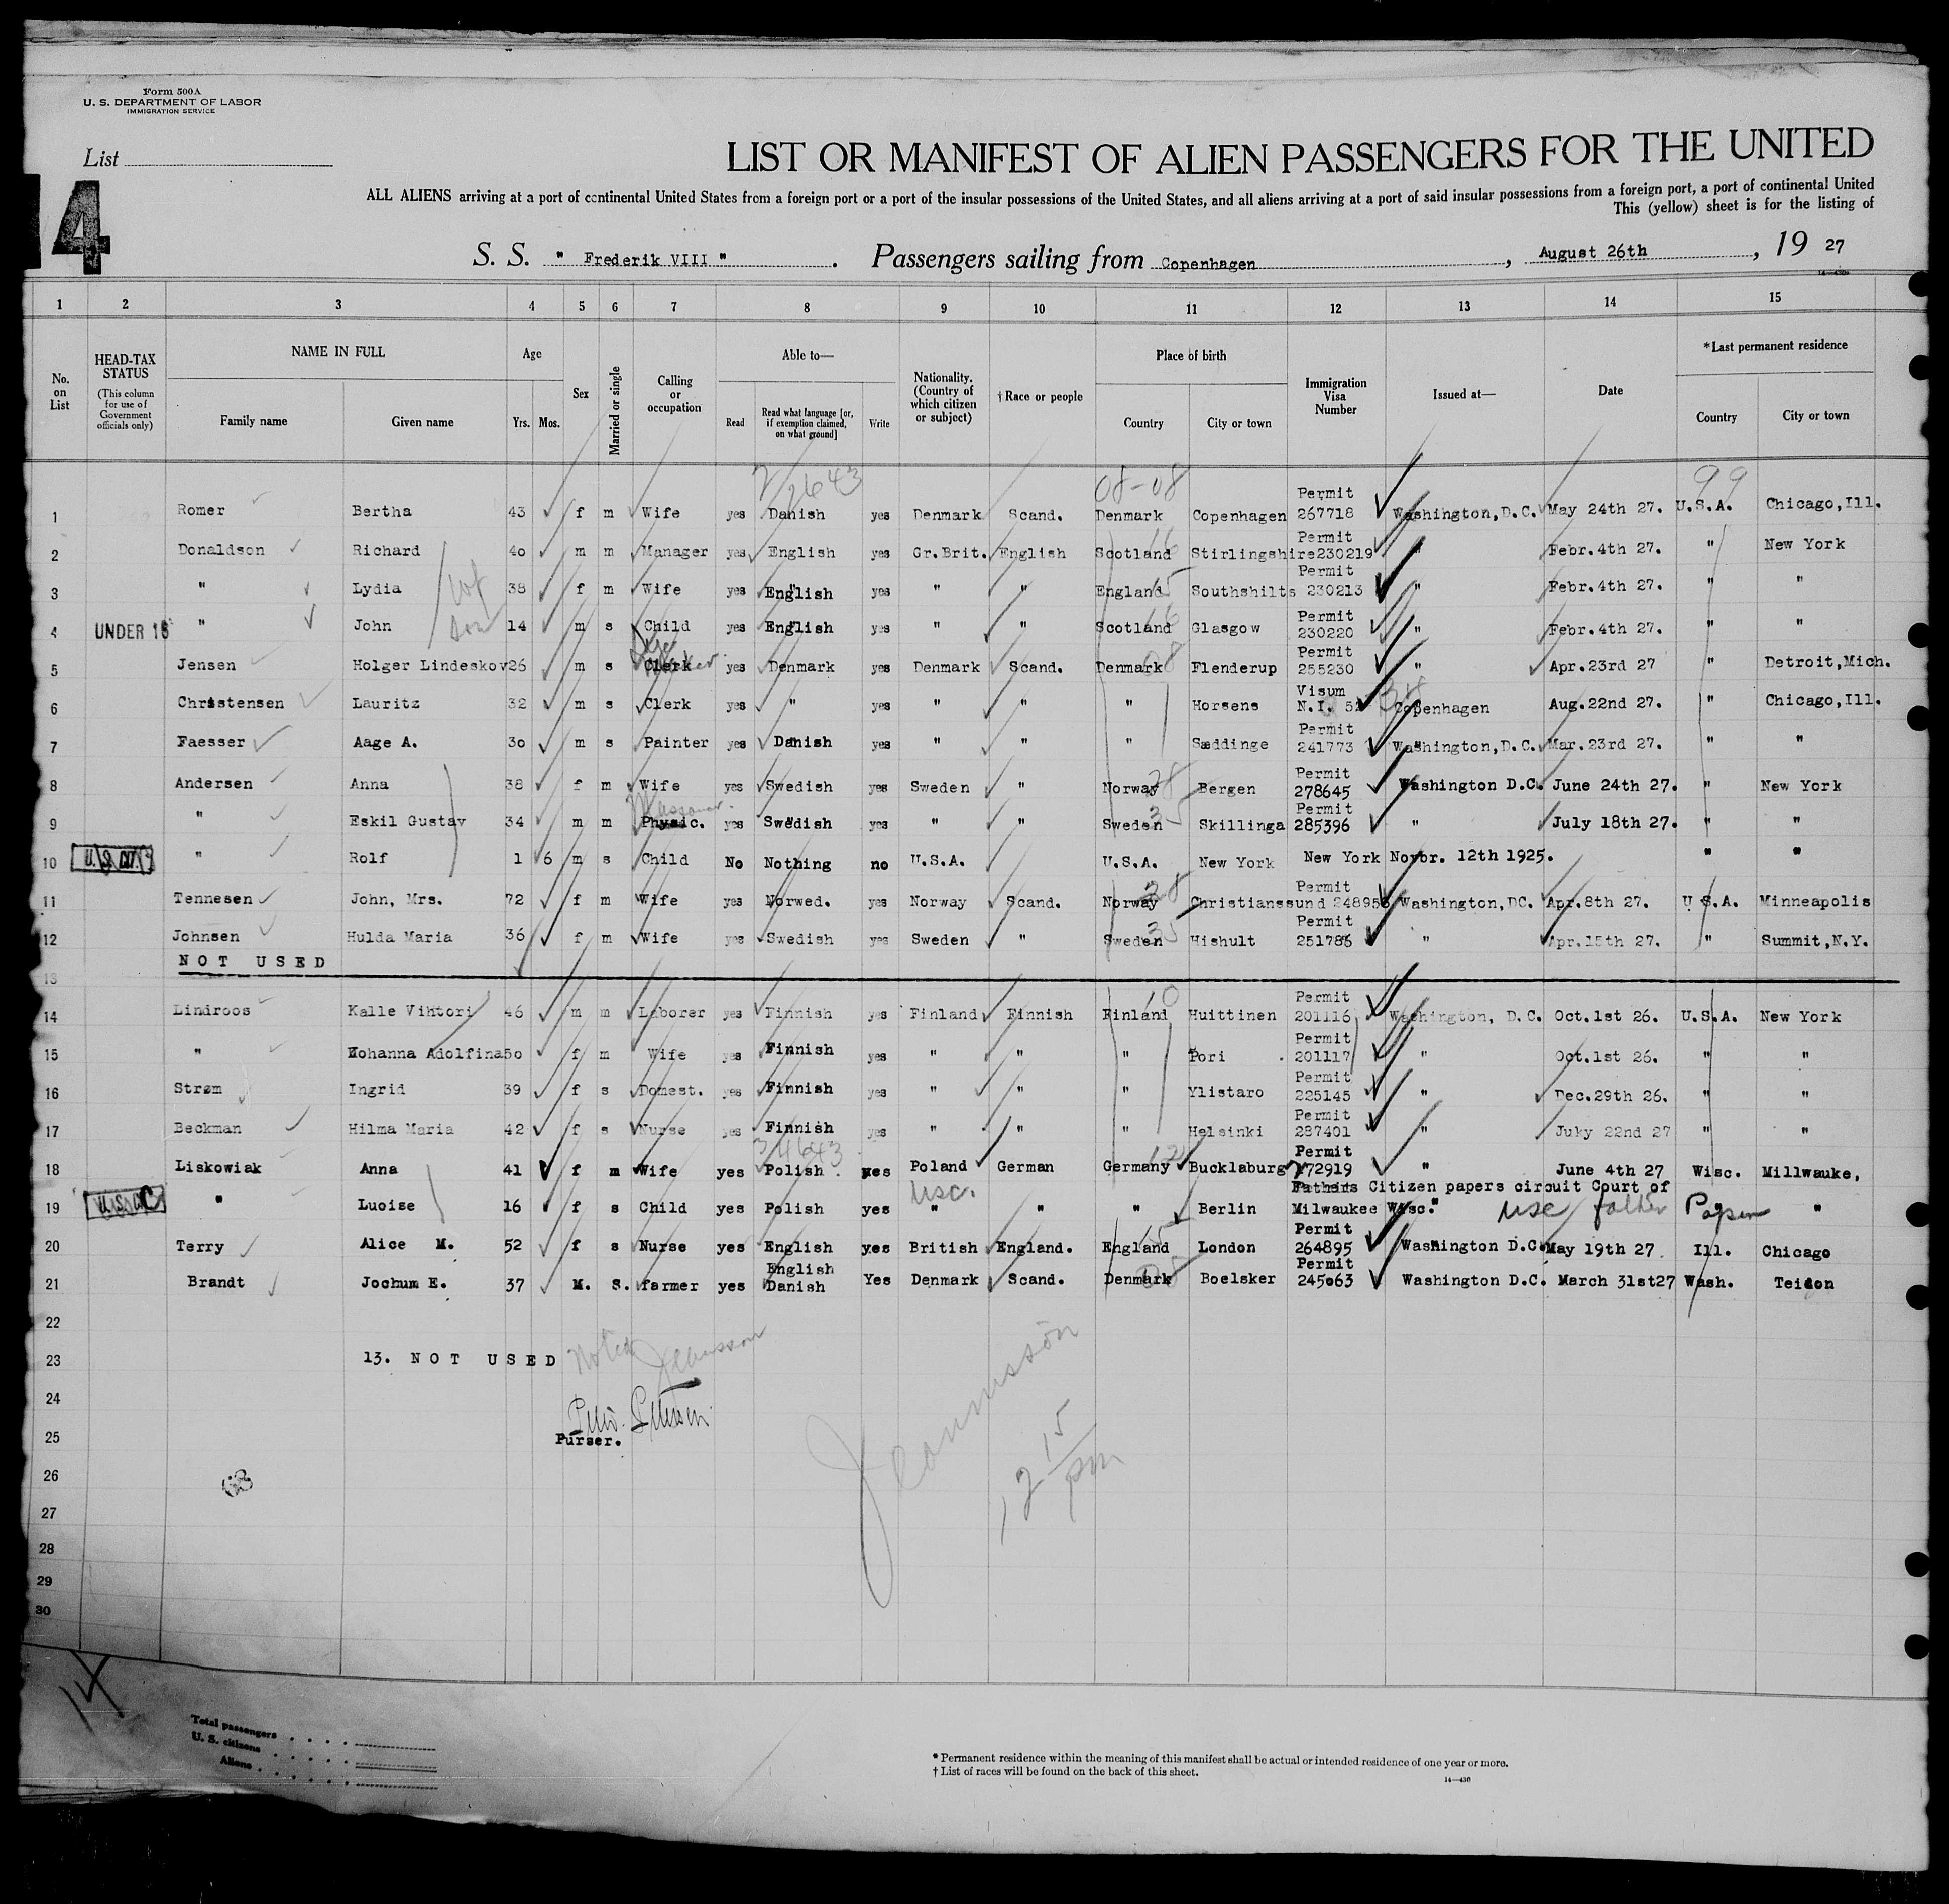 Form 500A
U. S. DEPARTMENT OF LABOR
IMMIGRATION SERVICE
List
4
LIST OR MANIFEST OF ALIEN PASSENGERS FOR THE UNITED
ALL ALIENS arriving at a port of continental United States from a foreign port or a port of the insular possessions of the United States, and all aliens arriving at a port of said insular possessions from a foreign port, a port of continental United
This (yellow) sheet is for the listing of
S. S. " Frederik VIII " . Passengers sailing from Copenhagen , August 26th , 19 27
1 2 3 4 5 6 7 8 9 10 11 12 13 14 15
No. on List
HEAD-TAX STATUS (This column for use of Government officials only)
NAME IN FULL Family name Given name
Age Yrs. Mos.
Sex
Married or single
Calling or occupation
Able to— Read Read what language [or, if exemption claimed, on what ground] Write
Nationality. (Country of which citizen or subject)
† Race or people
Place of birth Country City or town
Immigration Visa Number
Issued at—
Date
*Last permanent residence Country City or town
2/2643 08-08 99
1 Romer Bertha 43 f m Wife yes Danish yes Denmark Scand. Denmark Copenhagen Permit 267718 Washington, D.C. May 24th 27. U.S.A. Chicago, Ill.
2 Donaldson Richard 40 m m Manager yes English yes Gr.Brit. English Scotland 16 Stirlingshire Permit 230219 " Febr. 4th 27. " New York
3 " Lydia 38 f m Wife yes English yes " " England 15 Southshilts Permit 230213 " Febr. 4th 27. " "
4 UNDER 16 " John 14 m s Child yes English yes " " Scotland 16 Glasgow Permit 230220 " Febr. 4th 27. " "
5 Jensen Holger Lindeskov 26 m s Clerk yes Denmark yes Denmark Scand. Denmark 08 Flenderup Permit 255230 " Apr. 23rd 27 " Detroit, Mich.
6 Christensen Lauritz 32 m s Clerk yes " yes " " " Horsens Visum N.I. 52 Copenhagen Aug. 22nd 27. " Chicago, Ill.
7 Faesser Aage A. 30 m s Painter yes Danish yes " " " Sæddinge Permit 241773 Washington, D.C. Mar. 23rd 27. " "
8 Andersen Anna 38 f m Wife yes Swedish yes Sweden " Norway 28 Bergen Permit 278645 Washington D.C. June 24th 27. " New York
9 " Eskil Gustav 34 m m Physic. yes Swedish yes " " Sweden 35 Skillinga Permit 285396 " July 18th 27. " "
10 " Rolf 1 6 m s Child No Nothing no U.S.A. U.S.A. New York New York Novbr. 12th 1925. " "
11 Tennesen John, Mrs. 72 f m Wife yes Norwed. yes Norway Scand. Norway 28 Christianssund Permit 248958 Washington, DC. Apr. 8th 27. U.S.A. Minneapolis
12 Johnsen Hulda Maria 36 f m Wife yes Swedish yes Sweden " Sweden 35 Hishult Permit 251786 " Apr. 15th 27. " Summit, N.Y.
13 NOT USED
14 Lindroos Kalle Vihtori 46 m m Laborer yes Finnish yes Finland Finnish Finland 10 Huittinen Permit 201116 Washington, D.C. Oct. 1st 26. U.S.A. New York
15 " Johanna Adolfina 50 f m Wife yes Finnish yes " " " Pori Permit 201117 " Oct. 1st 26. " "
16 Strøm Ingrid 39 f s Domest. yes Finnish yes " " " Ylistaro Permit 225145 " Dec. 29th 26. " "
17 Beckman Hilma Maria 42 f s Nurse yes Finnish yes " " " Helsinki Permit 287401 " Juky 22nd 27 " "
34643
18 Liskowiak Anna 41 f m Wife yes Polish yes Poland German Germany 12 Bucklaburg Permit 172919 " June 4th 27 Wisc. Millwauke,
19 " Luoise 16 f s Child yes Polish yes usc. " " " Berlin Fathers Citizen papers circuit Court of Milwaukee Wisc. " usc father Papers "
20 Terry Alice M. 52 f s Nurse yes English yes British England. England 15 London Permit 264895 Washington D.C. May 19th 27 Ill. Chicago
21 Brandt Jochum E. 37 M. S. farmer yes English Danish Yes Denmark Scand. Denmark 08 Boelsker Permit 245063 Washington D.C. March 31st27 Wash. Teidon
22
23 13. NOT USED Noted
24
25 Purser.
12 15 pm
26
27
28
29
30
14
Total passengers
U. S. citizens
Aliens
* Permanent residence within the meaning of this manifest shall be actual or intended residence of one year or more.
† List of races will be found on the back of this sheet.
14—430